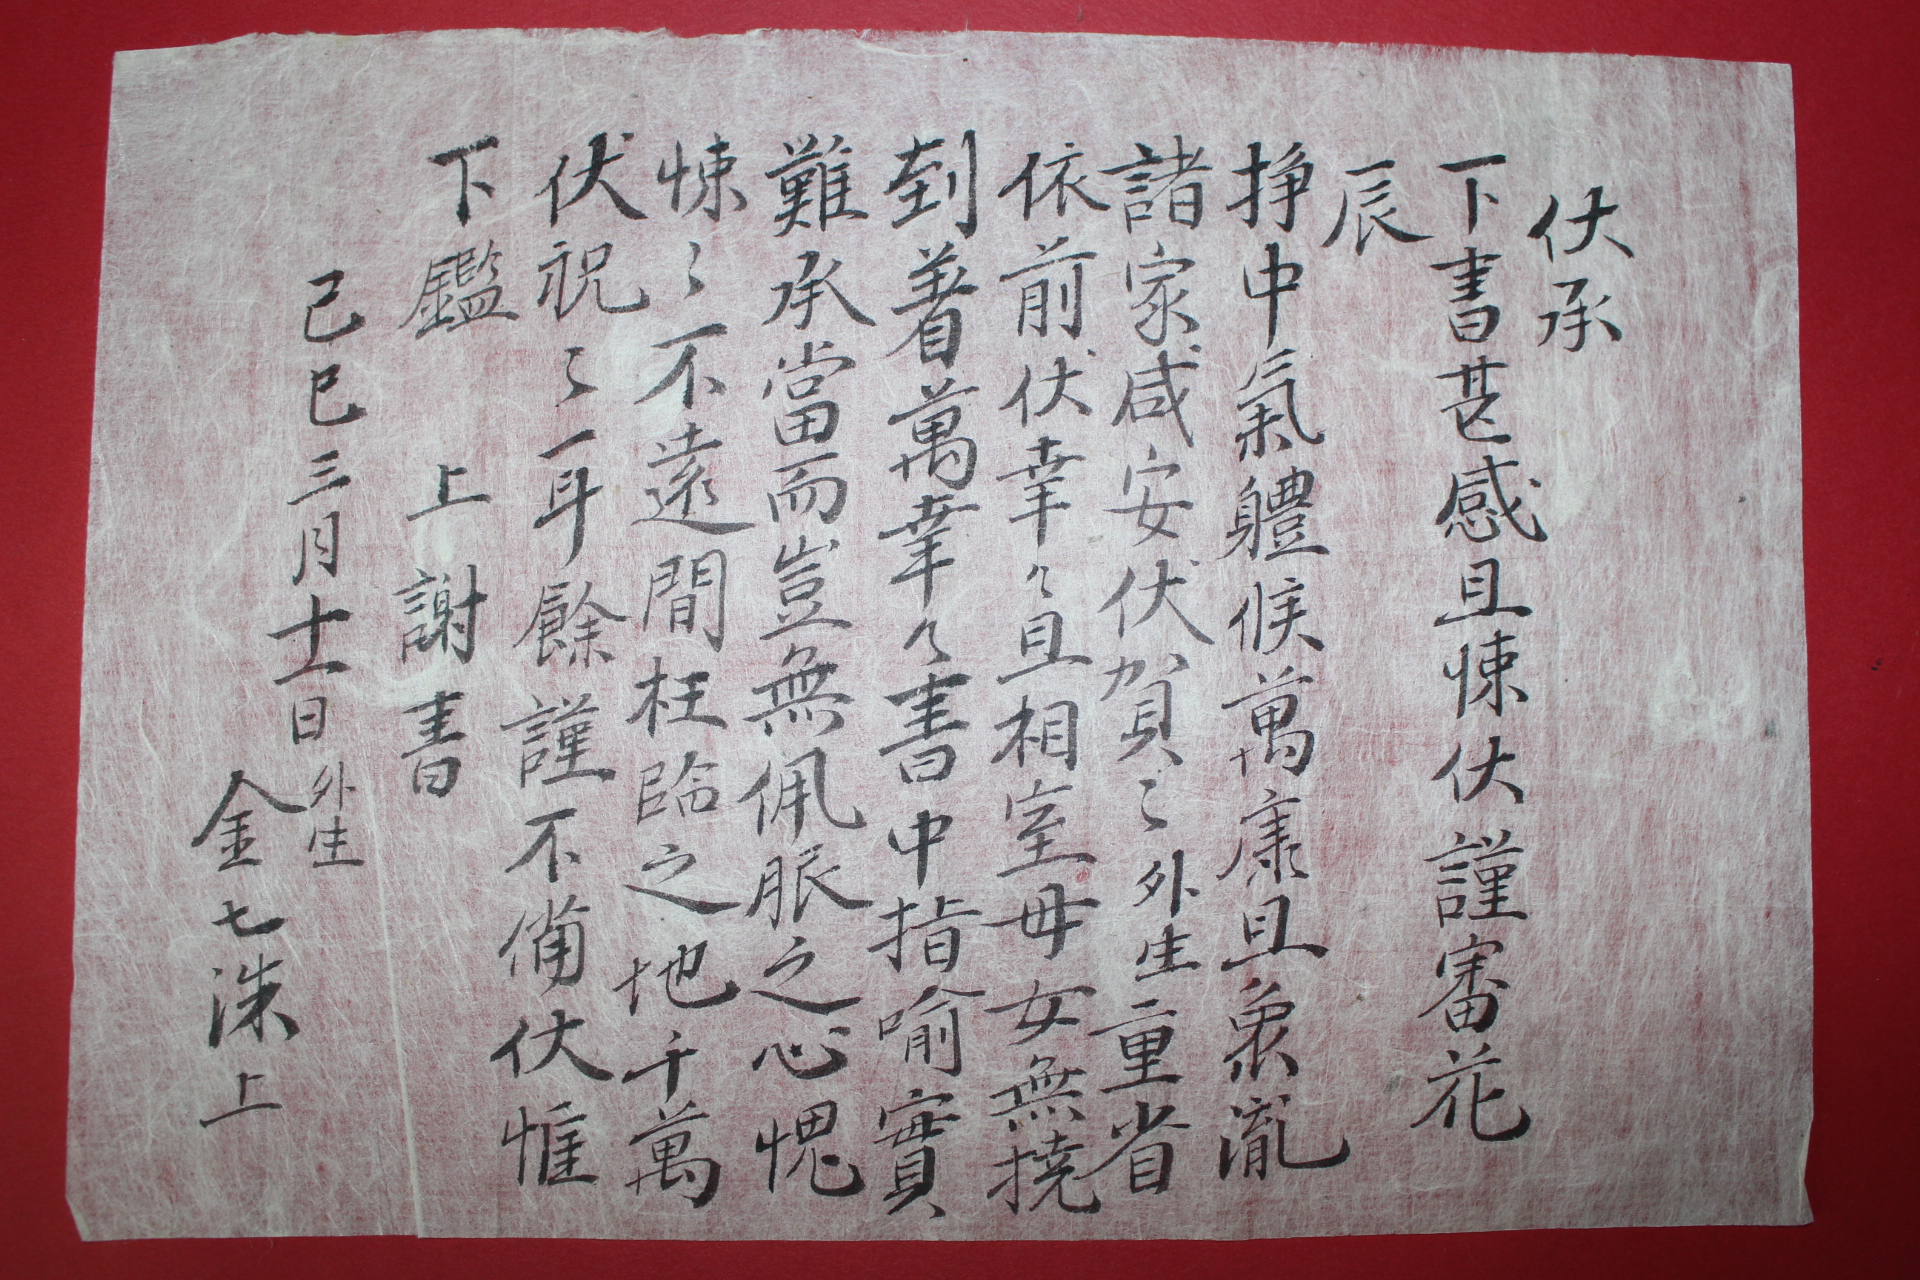 伏承
下書甚感且悚伏謹審花
辰
挣中氣體候萬康且象胤
諸家咸安伏賀〻外生重省
依前伏幸〻且相室母女無撓
到着萬幸〻書中指喻實
難承當而豈無佩服之心愧
悚〻不遠間枉臨之地千萬
伏祝〻耳餘謹不備伏惟
下鑑 上謝書
己巳三月十一日外生
金七洙上